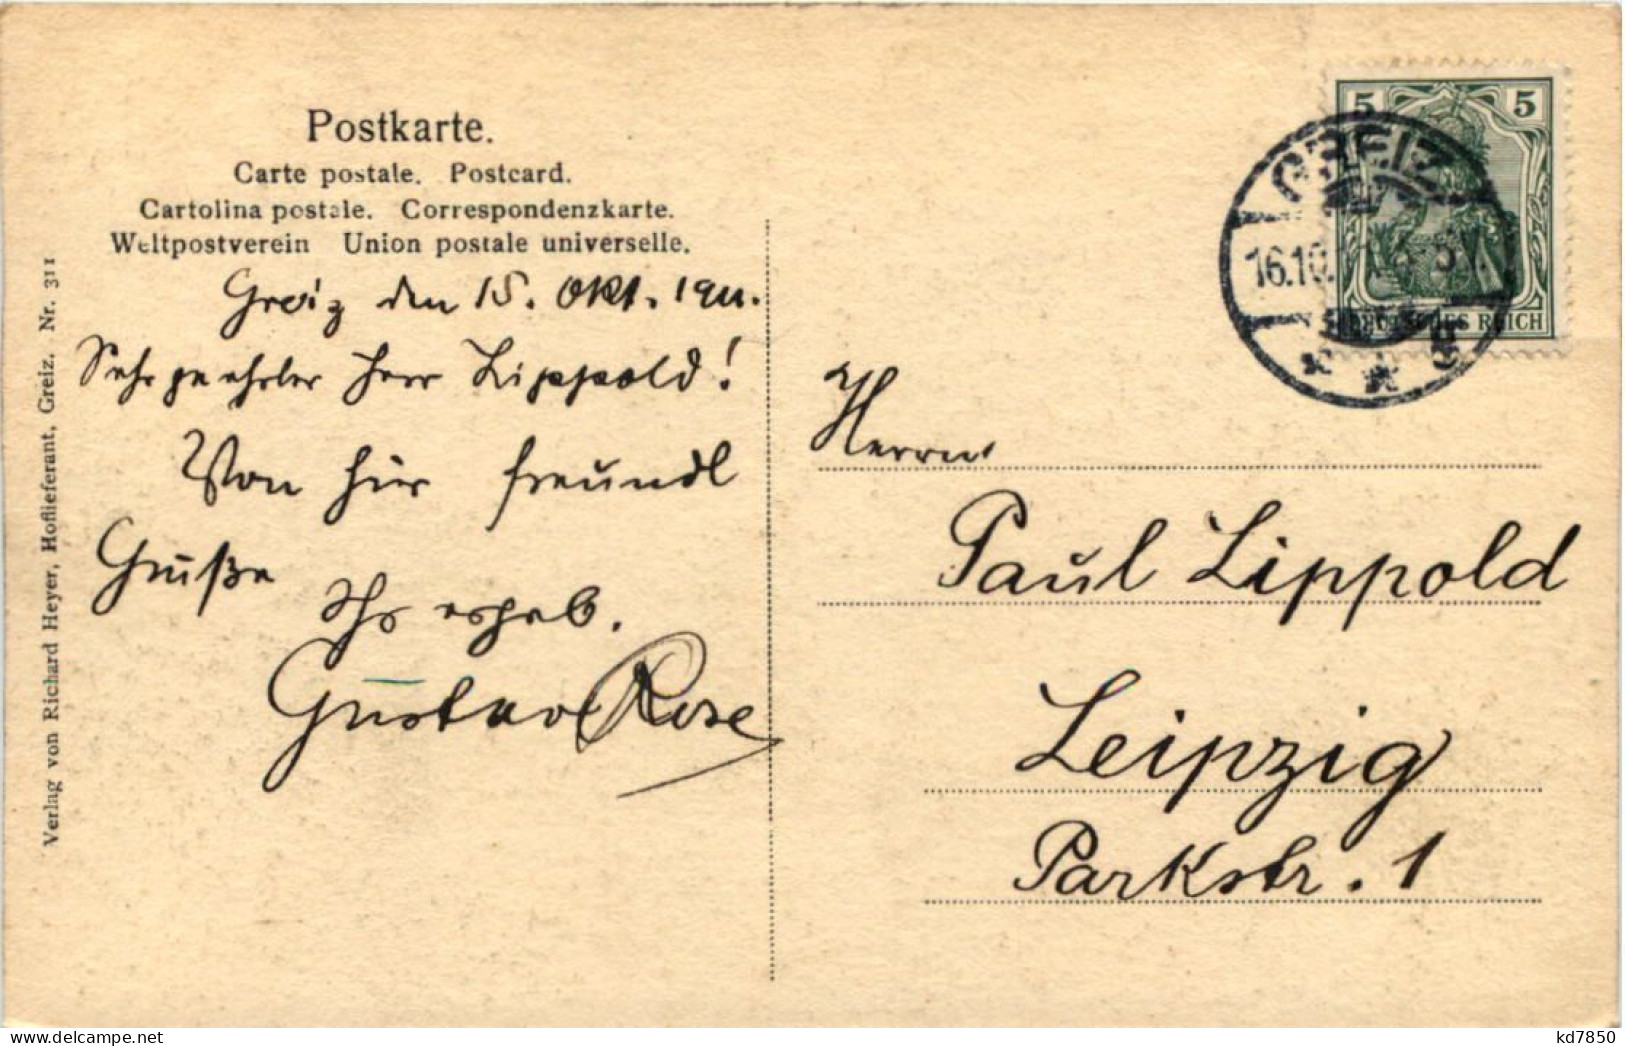 Postkarte.
Carte postale. Postcard.
Cartolina postale. Correspondenzkarte.
Weltpostverein Union postale universelle.
Greiz den 15. Okt. 1911.
Sehr geehrter Herr Lippold!
Von hier freundl
Grüße
Ihr ergeb.
Gustav Rose
Verlag von Richard Heyer, Hoflieferant, Greiz. Nr. 311
5 5
DEUTSCHES REICH
GREIZ
16.10.
Herrn
Paul Lippold
Leipzig
Parkstr. 1
kd7850